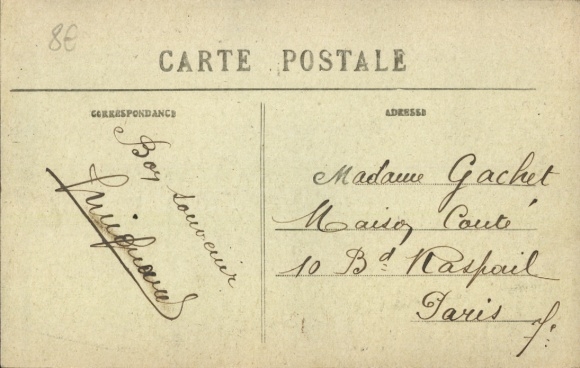 8€
CARTE POSTALE
CORRESPONDANCE
Bon souvenir
ADRESSE
Madame Gachet
Maison Conté
10 Bd Raspail
Paris 7e